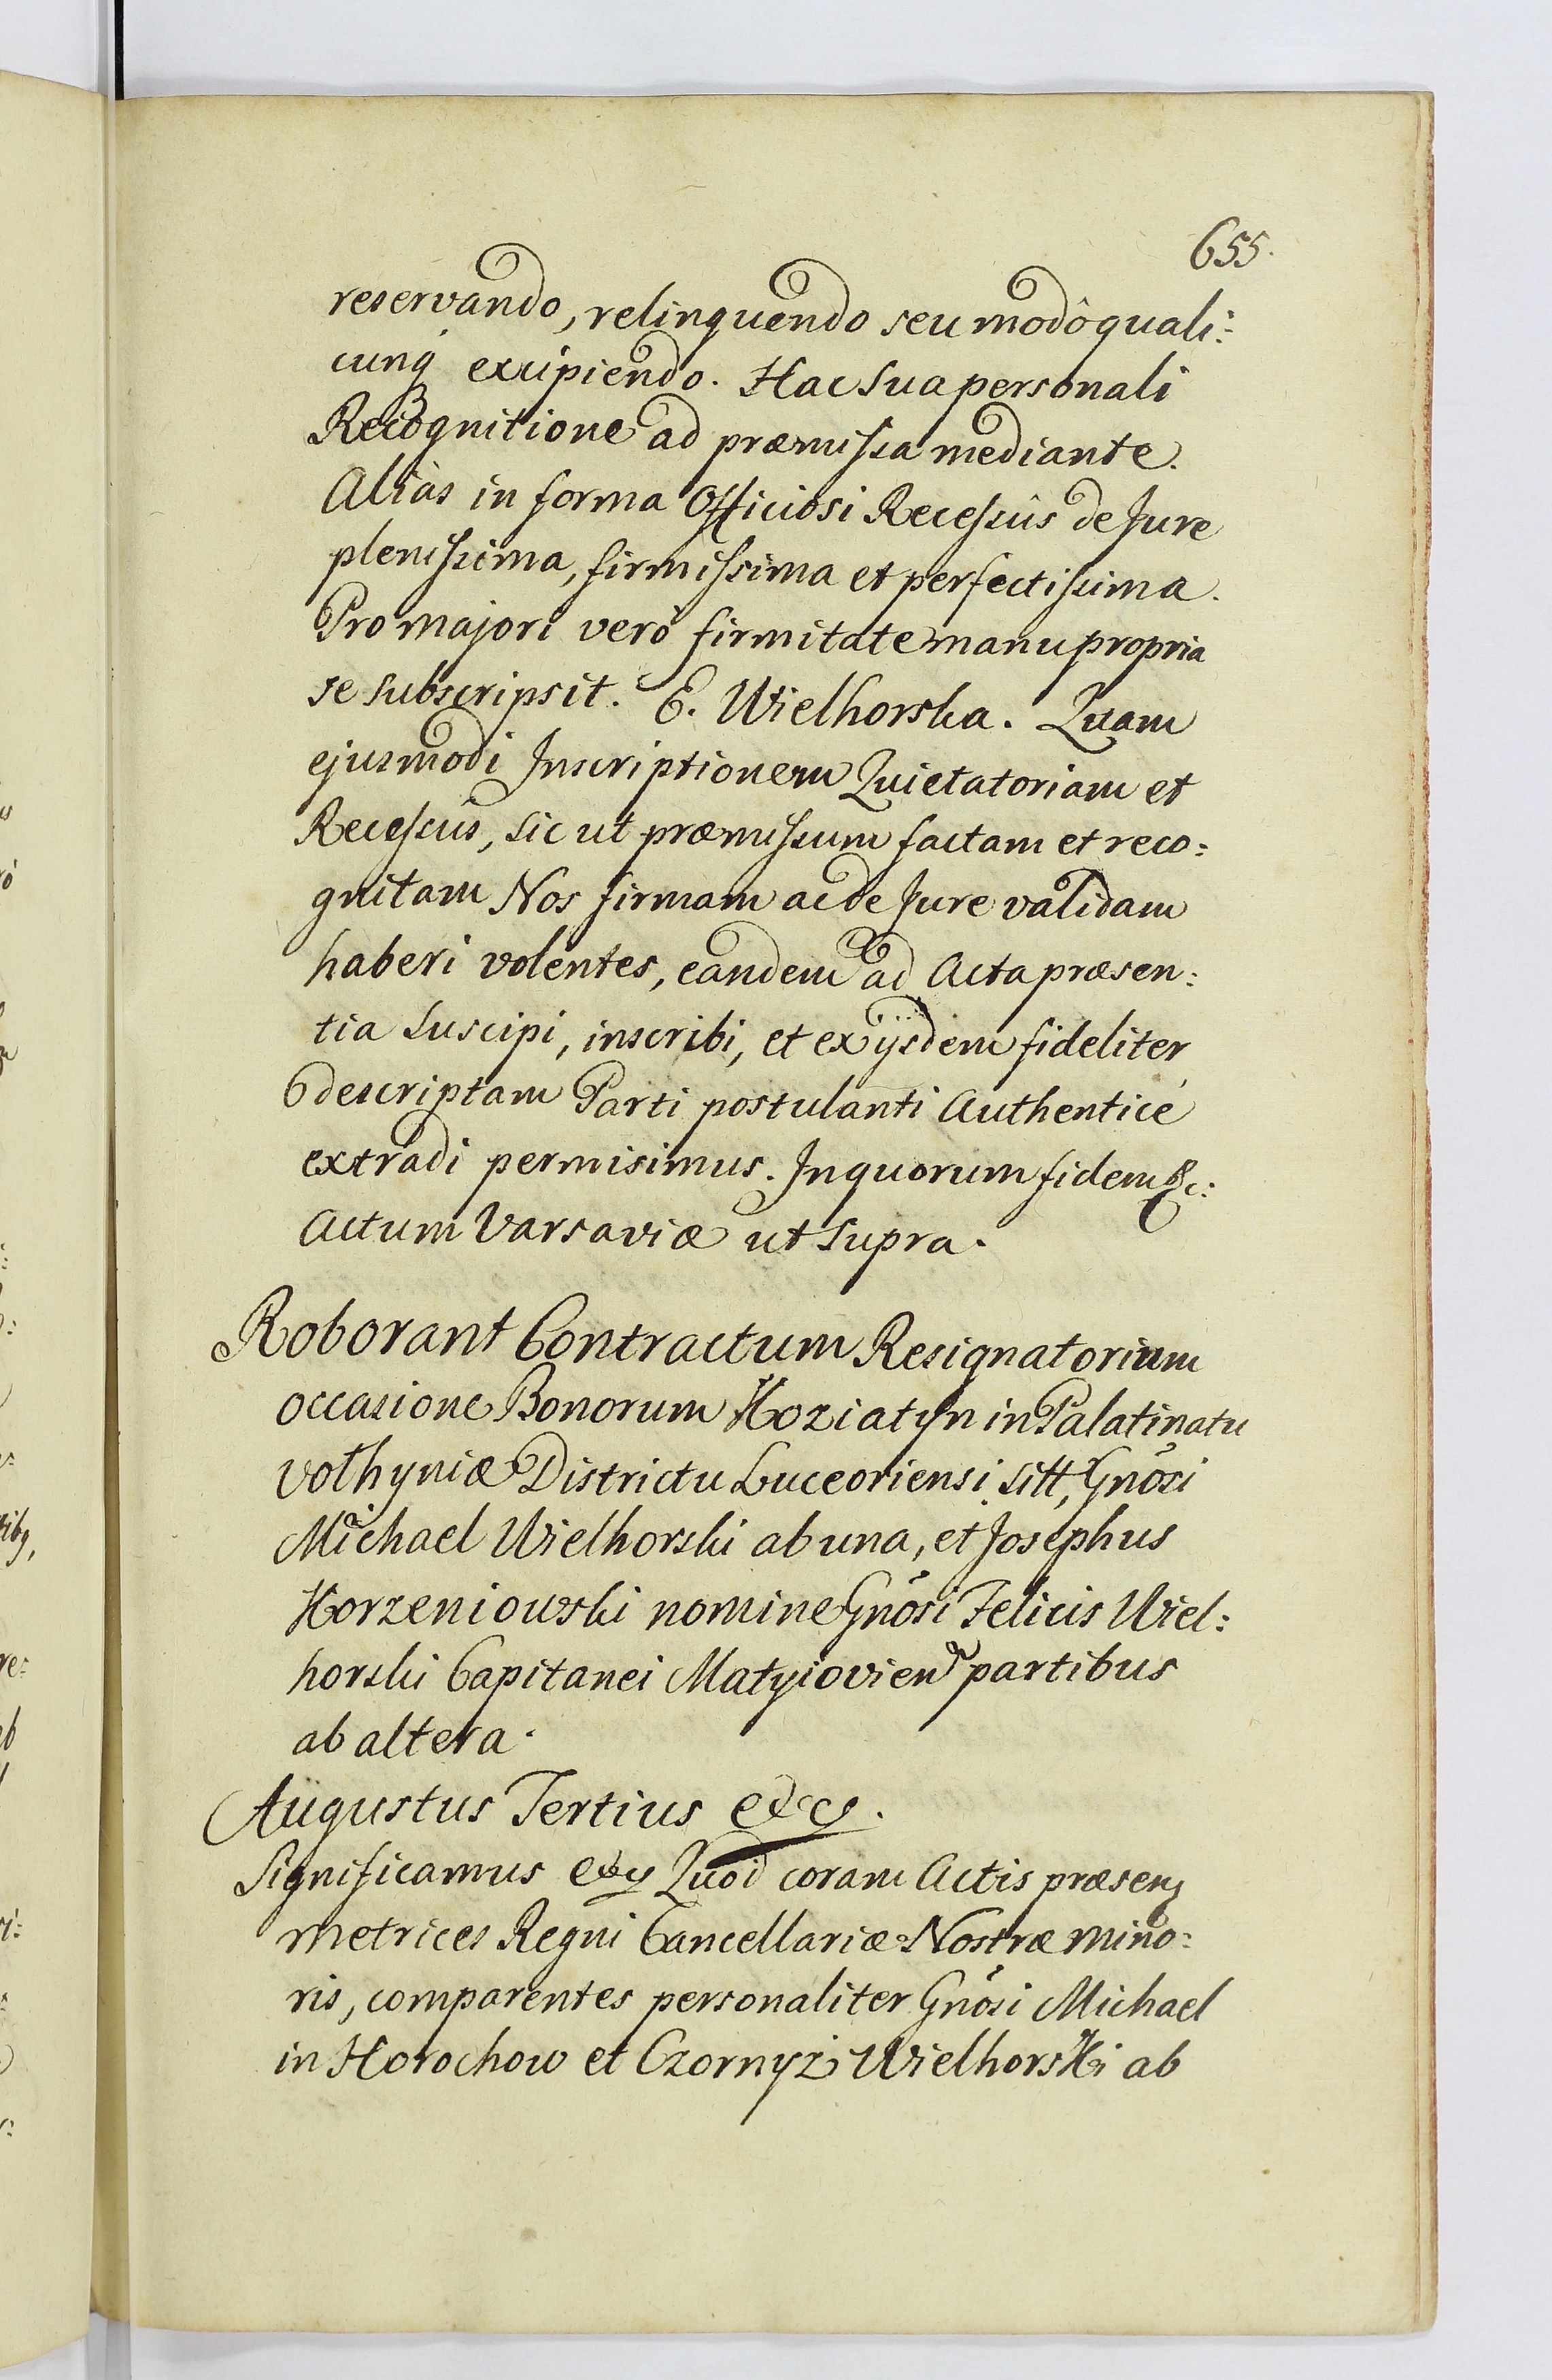 655.
reservando, relinquendo seu modô quali:
cunq excipiendo. Hac sua personali
Recognitione ad præmissa mediante.
Alias in forma Officiosi Recessûs de Jure
plenissima, firmissima et perfectissima.
Pro majori verò firmitate manu propria
se subscripsit. E. Wielhorska. Quam
ejusmodi Inscriptionem Quietatoriam et
Recessus, sic ut præmissum factam et reco:
gnitam Nos firmam ac de Jure validam
haberi volentes, eandem ad Acta præsen:
tia suscipi, inscribi, et ex ijsdem fideliter
descriptam Parti postulanti Authenticè
extradi permisimus. In quorum fidem &c:
Actum Varsaviæ ut supra.
Roborant Contractum Resignatorium
occasione Bonorum Koziatyn in Palatinatu
volhyniæ Districtu Luceoriensi sitt, Gnosi
Michael Wielhorski ab una, et Josephus
Korzeniowski nomine Gnosi Felicis Wiel:
horski Capitanei Matyiovien partibus
ab altera.
Augustus Tertius etc.
Significamus etc Quod coram Actis præsen
metrices Regni Cancellariæ Nostræ mino:
ris, comparentes personaliter Gnosi Michael
in Horochow et Czornyż Wielhorski ab